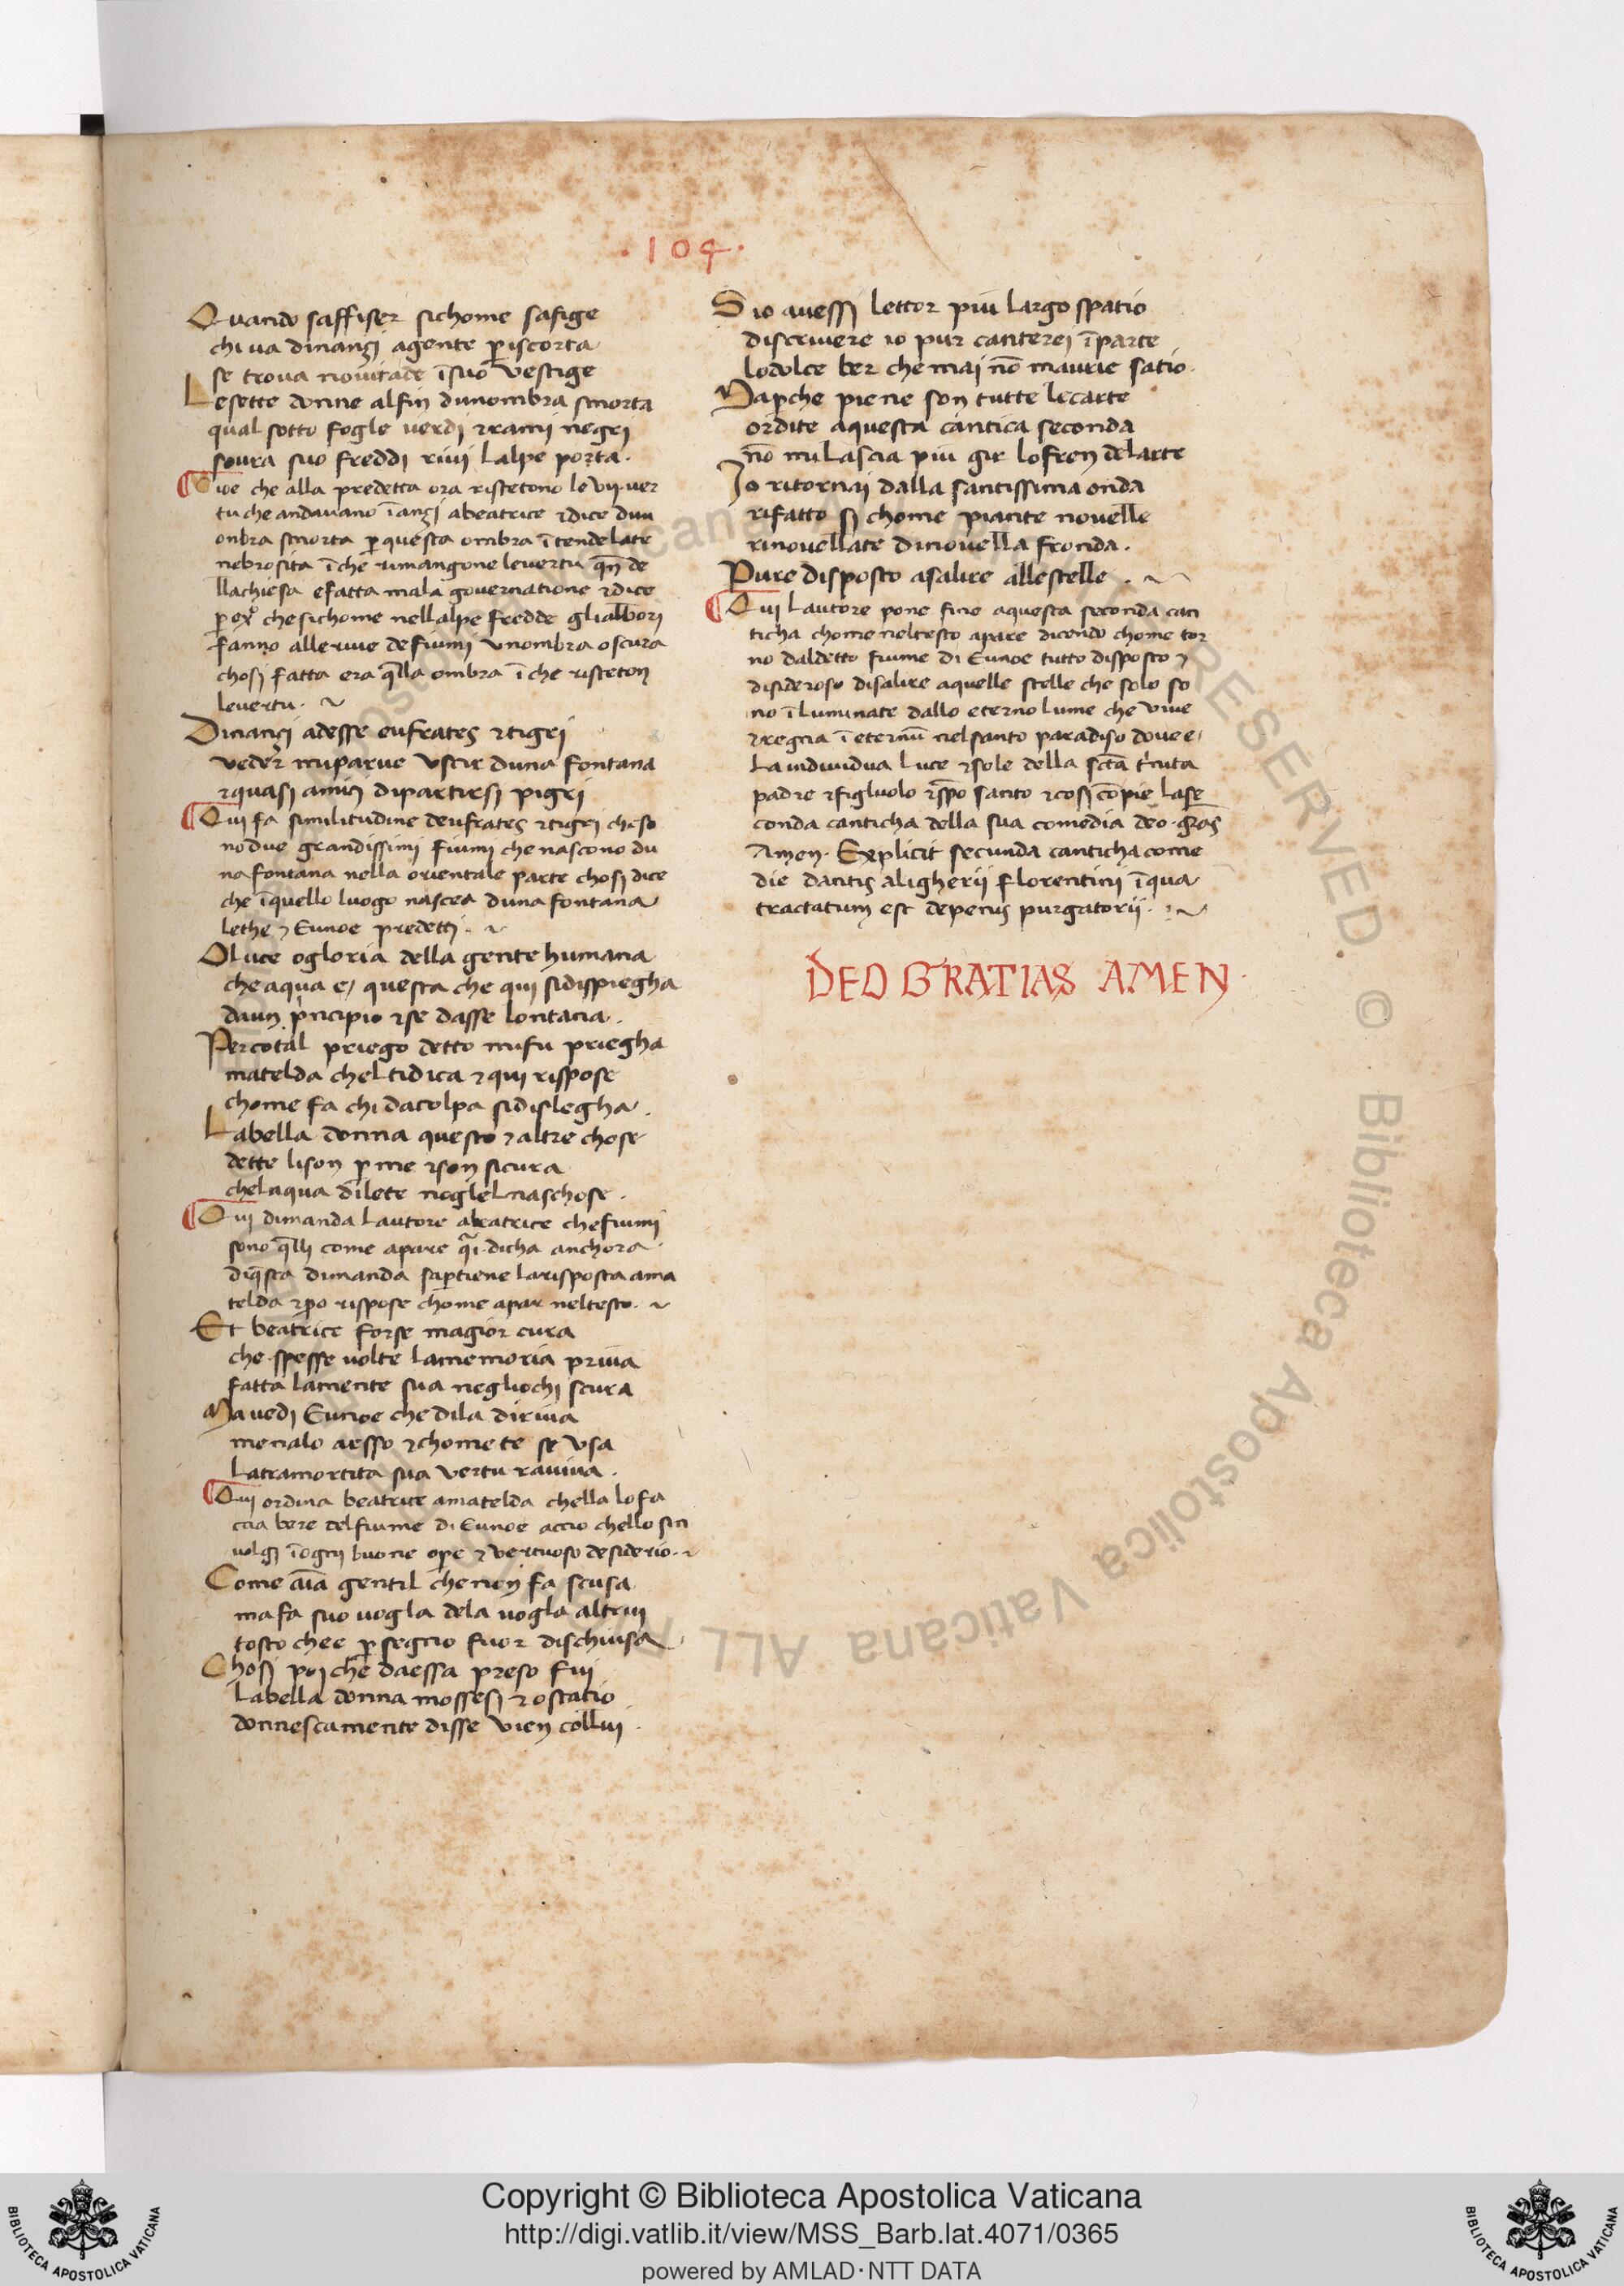 .104.
Quando saffiser sichome safige
chi ua dinanzi agente p̲iscorta
se troua nouitade ī suo vestige
Lesette donne alfin dunombra smorta
qual sotto fogle uerdi ⁊rami negri
soura suo freddi riui lalpe porta.
Cioe che alla predetta ora ristetono le vij. uer
tu che andauano īanzi abeatrice ⁊dice dun
onbra smorta p̲ questa ombra ītende late
nebrosita ī che rimangone leuertu qn̄ de
llachiesa efatta mala gouernatione ⁊dice
p̲ ex̄o che sichome nellalpe fredde glialbori
fanno alleriue defiumi vnombra oscura
chosi fatta era q̄lla ombra ī che risteton
leuertu.
Dinanzi adesse eufrates ⁊tigri
veder miparue vscir duna fontana
⁊quasi amici dipartirsi pigri
Qui fa similitudine deufrates ⁊tigri cheso
no due grandissimi fiumi che nascono du
na fontana nella orientale parte chosi dice
che īquello luogo nascea duna fontana
lethe ⁊ Eunoe predetti.
O luce ogloria della gente humana
che aqua e, questa che qui sidispiegha
daun pricipio ⁊se dasse lontana.
Percotal priego detto mifu priegha
matelda cheltidica ⁊ qui rispose
chome fa chi dacolpa sidislegha.
Labella donna questo ⁊ altre chose
dette lison p̲ me ⁊son sicura
chelaqua dilete noglel naschose.
Qui dimanda lautore abeatrice chefiumi
sono q̄lli come apare qui. dicha anchora
diq̄sta dimanda sapertiene larisposta ama
telda ⁊po rispose chome apar neltesto.
Et beatrice forse magior cura
che spesse uolte lamemoria priua
fatta lamente sua negliochi scura
Ma uedi Eunoe che dila diriua
menalo aesso ⁊chome te se vsa
Latramortita sua vertu rauiua.
Qui ordina beatrice amatelda chella lofa
ccia bere del fiume di Eunoe accio chello sin
uolgi īogni buone ope ⁊ vertuoso desiderio.
Come aīa gentil che non fa scusa
ma fa suo uogla dela uogla altrui
tosto chee p̲ segno fuor dischiusa
Chosi poi che daessa preso fui
labella donna mossesi ⁊ ostatio
donnescamente disse vien collui.
Sio auessi lettor piu largo spatio
discriuere io pur canterei īparte
lodolce ber che mai nō maurie satio.
Ma p̲che piene son tutte lecarte
ordite aquesta cantica seconda
nō milascia piu gir lofren delarte
Io ritornai dalla santissima onda
rifatto si chome piante nouelle
rinouellate dinouella fronda.
Pure disposto asalire allestelle.
Qui lautore pone fine aquesta seconda can
ticha chome neltesto apare dicendo chome tor
no daldetto fiume di Eunoe tutto disposto ⁊
disideroso disalire aquelle stelle che solo so
no īluminate dallo eterno lume che viue
⁊regna ī eternū nelsanto paradiso doue e,
la indiuidua luce ⁊sole della sctā trinita
padre ⁊figluolo ⁊spō santo ⁊cosi cōpie lase
conda canticha della sua comedia deo. gr̄as
Amen. Explicit secunda canticha come
die dantis aligherii florentini īqua
tractatum est depenis purgatorii.
DEO GRATIAS AMEN.
Copyright © Biblioteca Apostolica Vaticana
http://digi.vatlib.it/view/MSS_Barb.lat.4071/0365
powered by AMLAD·NTT DATA
BIBLIOTECA APOSTOLICA VATICANA
BIBLIOTECA APOSTOLICA VATICANA